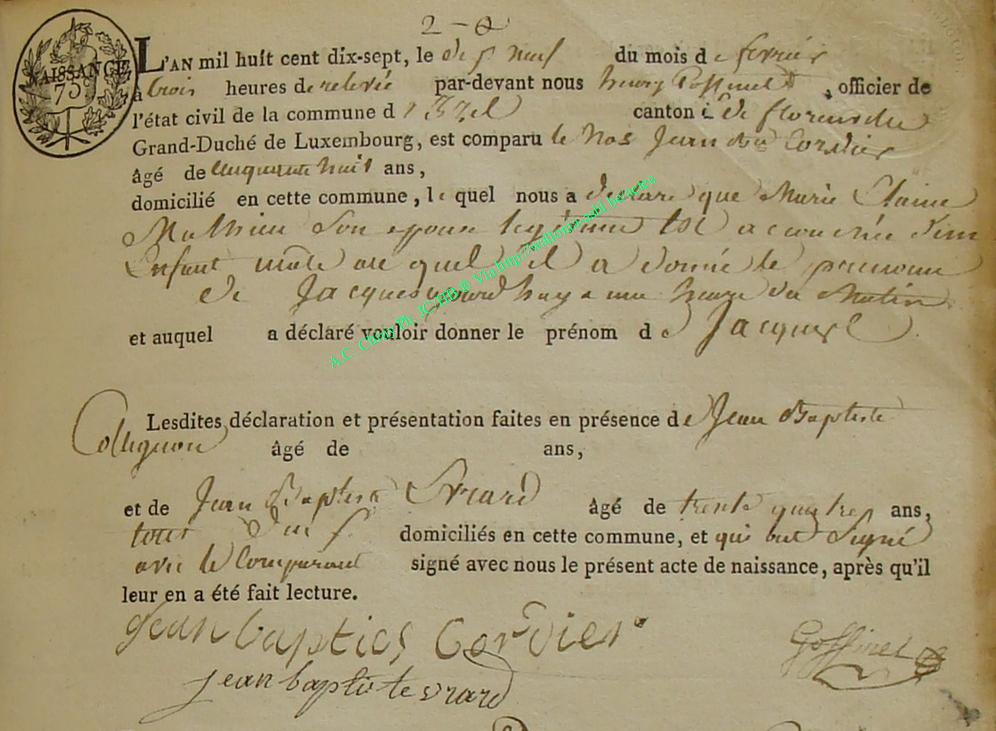 2
NAISSANCE
75
L'AN mil huit cent dix-sept, le dix neuf du mois de fevrier
à trois heures de relevée par-devant nous henry Goffinet, officier de
l'état civil de la commune d'Izel canton de florenville
Grand-Duché de Luxembourg, est comparu le Jean Cordier
âgé de cinquante huit ans,
domicilié en cette commune, lequel nous a declare que Marie Claire
Mathieu Son epouse legitime est acouchée d'un
Enfant male au quel il a donné le prenom
de Jacques aujourd huy a une heure du Matin
et auquel a déclaré vouloir donner le prénom de Jacques
Lesdites déclaration et présentation faites en présence de Jean Baptiste
Collignon âgé de ans,
et de Jean Baptiste Evrard âgé de trente quatre ans,
tous domiciliés en cette commune, et qui ont Signé
avec le Comparant signé avec nous le présent acte de naissance, après qu'il
leur en a été fait lecture.
jean bapties Cordier
Goffinet
jean baptiste evrard